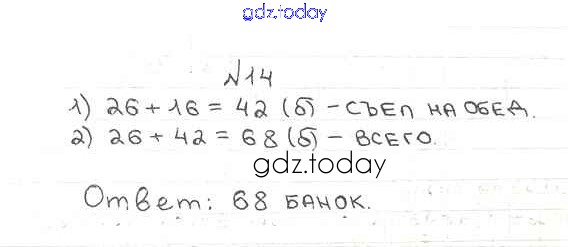 gdz.today
№14
1) 26 + 16 = 42 (б) - СЪЕЛ НА ОБЕД.
2) 26 + 42 = 68 (б) - ВСЕГО.
gdz.today
Ответ: 68 БАНОК.